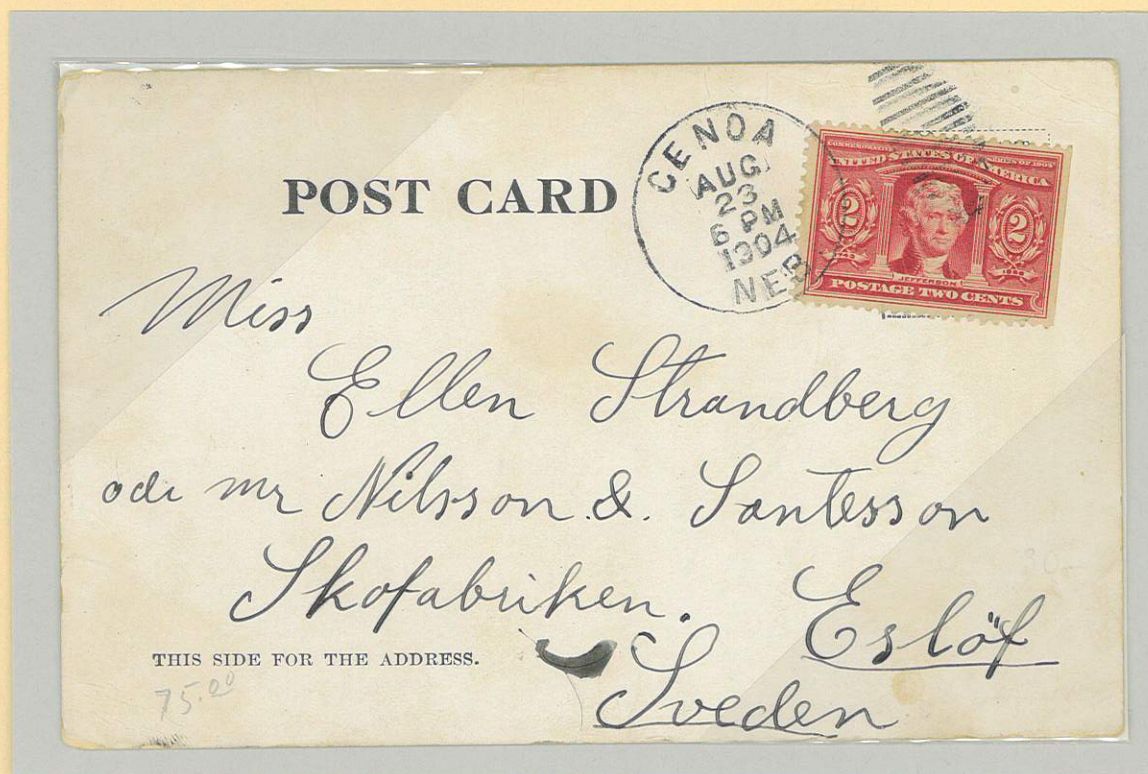 POST CARD
GENOA
AUG
23
6 PM
1904
NEB
UNITED STATES OF AMERICA
2 2
JEFFERSON
POSTAGE TWO CENTS
Miss
Ellen Strandberg
mr Nilsson & Santesson
Skofabriken. Eslöf
Sveden
THIS SIDE FOR THE ADDRESS.
75.00